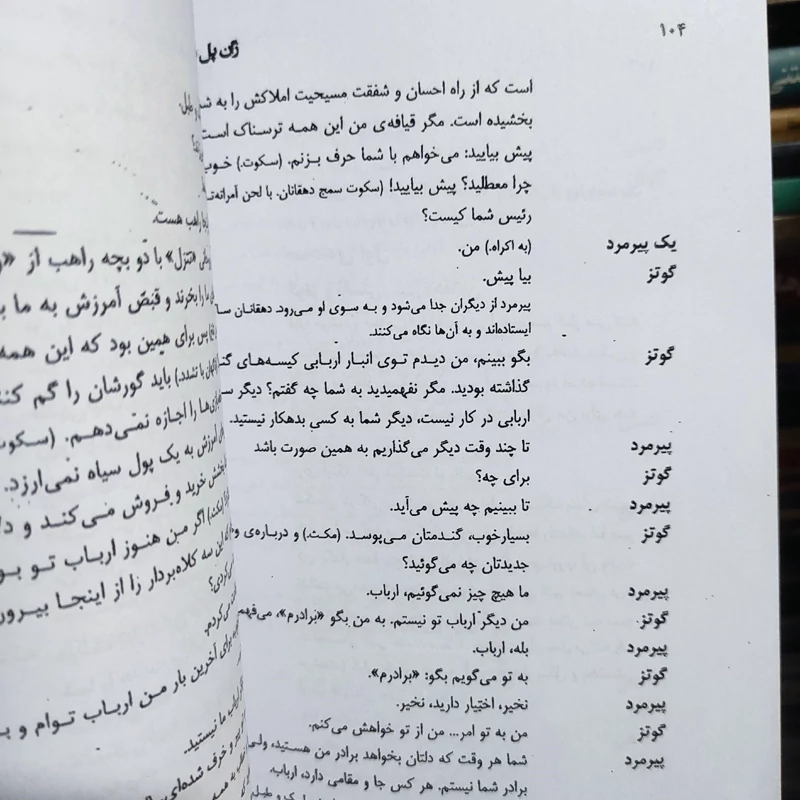 ۱۰۴
ژان پل
است که از راه احسان و شفقت مسیحیت املاکش را به شما
بخشیده است. مگر قیافه‌ی من این همه ترسناک است
پیش بیایید: می‌خواهم با شما حرف بزنم. (سکوت.) خوب
چرا معطلید؟ پیش بیایید! (سکوت سمج دهقانان. با لحن آمرانه‌تر
رئیس شما کیست؟
یک پیرمرد (به اکراه.) من.
گوتز بیا پیش.
پیرمرد از دیگران جدا می‌شود و به سوی او می‌رود. دهقانان
ایستاده‌اند و به آن‌ها نگاه می‌کنند.
گوتز بگو ببینم، من دیدم توی انبار اربابی کیسه‌های
گذاشته بودید. مگر نفهمیدید به شما چه گفتم؟ دیگر
اربابی در کار نیست، دیگر شما به کسی بدهکار نیستید.
پیرمرد تا چند وقت دیگر می‌گذاریم به همین صورت باشد
گوتز برای چه؟
پیرمرد تا ببینیم چه پیش می‌آید.
گوتز بسیارخوب، گندمتان می‌پوسد. (مکث.) و درباره‌ی
جدیدتان چه می‌گوئید؟
پیرمرد ما هیچ چیز نمی‌گوئیم، ارباب.
گوتز من دیگر ارباب تو نیستم. به من بگو «برادرم»، می‌فهم
پیرمرد بله، ارباب.
گوتز به تو می‌گویم بگو: «برادرم».
پیرمرد نخیر، اختیار دارید، نخیر.
گوتز من به تو امر... من از تو خواهش می‌کنم.
پیرمرد شما هر وقت که دلتان بخواهد برادر من هستید، ولی
برادر شما نیستم. هر کس جا و مقامی دارد، ارباب.
راهب هست.
«تتزل» با دو بچه راهب از
را بخرند و قبض آمرزش به ما
پس برای همین بود که این همه
باید گورشان را گم کنند
را اجازه نمی‌دهم. (سکوت
آمرزش به یک پول سیاه نمی‌ارزد.
خرید و فروش می‌کند و
اگر من هنوز ارباب تو
این سه کلاه‌بردار را از اینجا بیرون
می‌کردم.
برای آخرین بار من ارباب توام و
ارباب ما نیستید.
و خرف شده‌ای